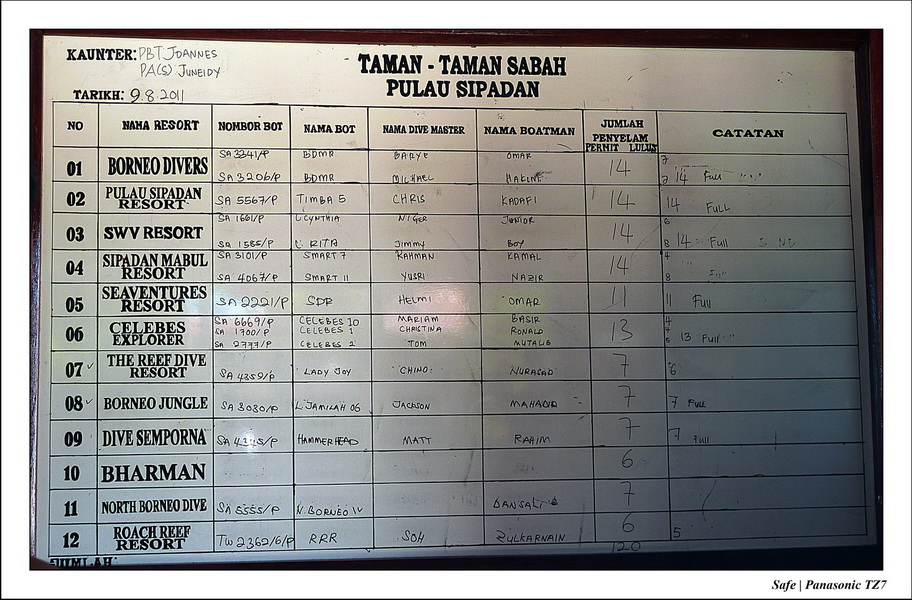 KAUNTER: PBT JOANNES
PA(S) JUNEIDY
TARIKH: 9.8.2011
TAMAN - TAMAN SABAH
PULAU SIPADAN
NO NAMA RESORT NOMBOR BOT NAMA BOT NAMA DIVE MASTER NAMA BOATMAN JUMLAH PENYELAM PERMIT LULUS CATATAN
01 BORNEO DIVERS SA 3341/P BDMR BARYE OMAR 14 7
SA 3206/P BDMR MICHAEL HAKIM 7 14 Full
02 PULAU SIPADAN RESORT SA 5567/P TIMBA 5 CHRIS KADAFI 14 14 FULL
03 SWV RESORT SA 1661/P L CYNTHIA NIGER JUNIOR 14 6
SA 1585/P L. RITA JIMMY BOY 8 14 Full
04 SIPADAN MABUL RESORT SA 3101/P SMART 7 RAHMAN KAMAL 14 4
SA 4067/P SMART 11 YUSRI NAZIR 8
05 SEAVENTURES RESORT SA 2221/P SDR HELMI OMAR 11 11 Full
06 CELEBES EXPLORER SA 6669/P CELEBES 10 MARIAM BASIR 13 4
SA 1700/P CELEBES 1 CHRISTINA RONALD
SA 2777/P CELEBES 2 TOM MUTALIB 13 Full
07 THE REEF DIVE RESORT SA 4359/P LADY JOY CHINO NURASAD 7 6
08 BORNEO JUNGLE SA 3030/P L JAMILAH 06 JACKSON MAHADIR 7 7 Full
09 DIVE SEMPORNA HAMMERHEAD MATT RAHIM 7 7 Full
10 BHARMAN 6
11 NORTH BORNEO DIVE SA 5555/P N. BORNEO IV DANSALI 7
12 ROACH REEF RESORT TW 2362/6/P RRR SOH ZULKARNAIN 6 5
JUMLAH: 120
Safe | Panasonic TZ7